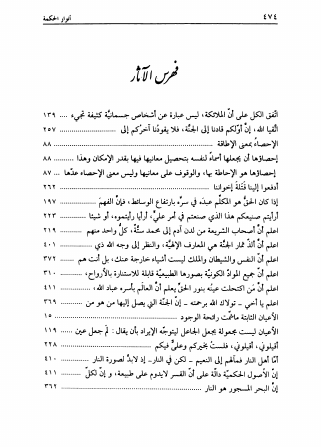 ٤٧٤ أنوار الحكمة
فهرس الآثار
اتّفق الكل على أنّ الملائكة، ليس عبارة عن أشخاص جسمانيّة كثيفة تجيء ... ١٣٩
اتّقيا الله، إنّ أوّلكم قادنا إلى الجنّة، فلا يقودنا آخركم إلى ... ٢٥٧
الإحصاء بمعنى الإطاقة ... ٨٨
إحصاؤها أن يجعلها أسماءً لنفسه بتحصيل معانيها فيها بقدر الإمكان وهذا ... ٨٨
إحصاؤها هو الإحاطة بها، والوقوف على معانيها وليس معنى الإحصاء عدّها ... ٨٧
ادفعوا إلينا قتلة إخواننا ... ٢٦٢
إذا كان الحقّ هو المكلّم عبده في سرّه بارتفاع الوسائط، فإنّ الفهم ... ١٩٧
أرأيتم صنيعكم هذا الذي صنعتم في أمر عليّ، أرأياً رأيتموه، أو شيئاً ... ٢٢٣
اعلم أنّ أصحاب الشريعة من لدن آدم إلى محمد ستّة، كلّ واحد منهم ... ٢١٩
اعلم أنّ ألذّ ثمار الجنّة هي المعارف الإلهيّة، والنظر إلى وجه الله ذي ... ٤٠١
اعلم أنّ النفس والشيطان والملك ليست أشياء خارجة عنك، بل أنت هم ... ٣٧٢
اعلم أنّ جميع الموادّ الكونيّة بصورها الطبيعيّة قابلة للاستنارة بالأرواح، ... ٣١٠
اعلم أنّ من اكتحلت عينه بنور الحق يعلم أنّ العالَم بأسره عباد الله، ... ٤١١
اعلم يا أخي ـ تولاك الله برحمته ـ إنّ الجنّة التي يصل إليها من هو من ... ٣٦٨
الأعيان الثابتة ماشمّت رائحة الوجود ... ١٥
الأعيان ليست مجعولة بجعل الجاعل ليتوجّه الإيراد بأن يقال: لم جعل عين ... ١١٩
أقيلوني، أقيلوني، فلست بخيركم وعليّ فيكم ... ٢٣٨
أمّا أهل النار فمآلهم إلى النعيم ـ لكن في النار ـ إذ لابدّ لصورة النار ... ٤١٠
إنّ الأصول الحكميّة دالّة على أنّ القسر لايدوم على طبيعة، و إن لكلّ ... ٤١١
إنّ البحر المسجور هو النار ... ٣٦٢